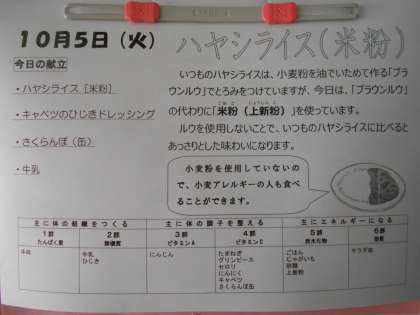 10月5日（火）
ハヤシライス（米粉）
今日の献立
・ハヤシライス［米粉］
・キャベツのひじきドレッシング
・さくらんぼ（缶）
・牛乳
いつものハヤシライスは、小麦粉を油でいためて作る「ブラ
ウンルウ」でとろみをつけていますが、今日は、「ブラウンルウ」
の代わりに「米粉（上新粉）」を使っています。
ルウを使用しないことで、いつものハヤシライスに比べると
あっさりとした味わいになります。
小麦粉を使用していないの
で、小麦アレルギーの人も食べ
ることができます。
主に体の組織をつくる 主に体の調子を整える 主にエネルギーになる
1群 2群 3群 4群 5群 6群
たんぱく質 無機質 ビタミンA ビタミンC 炭水化物 脂質
牛肉 牛乳 にんじん たまねぎ ごはん サラダ油
ひじき グリンピース じゃがいも
セロリ 砂糖
にんにく 上新粉
キャベツ
さくらんぼ缶